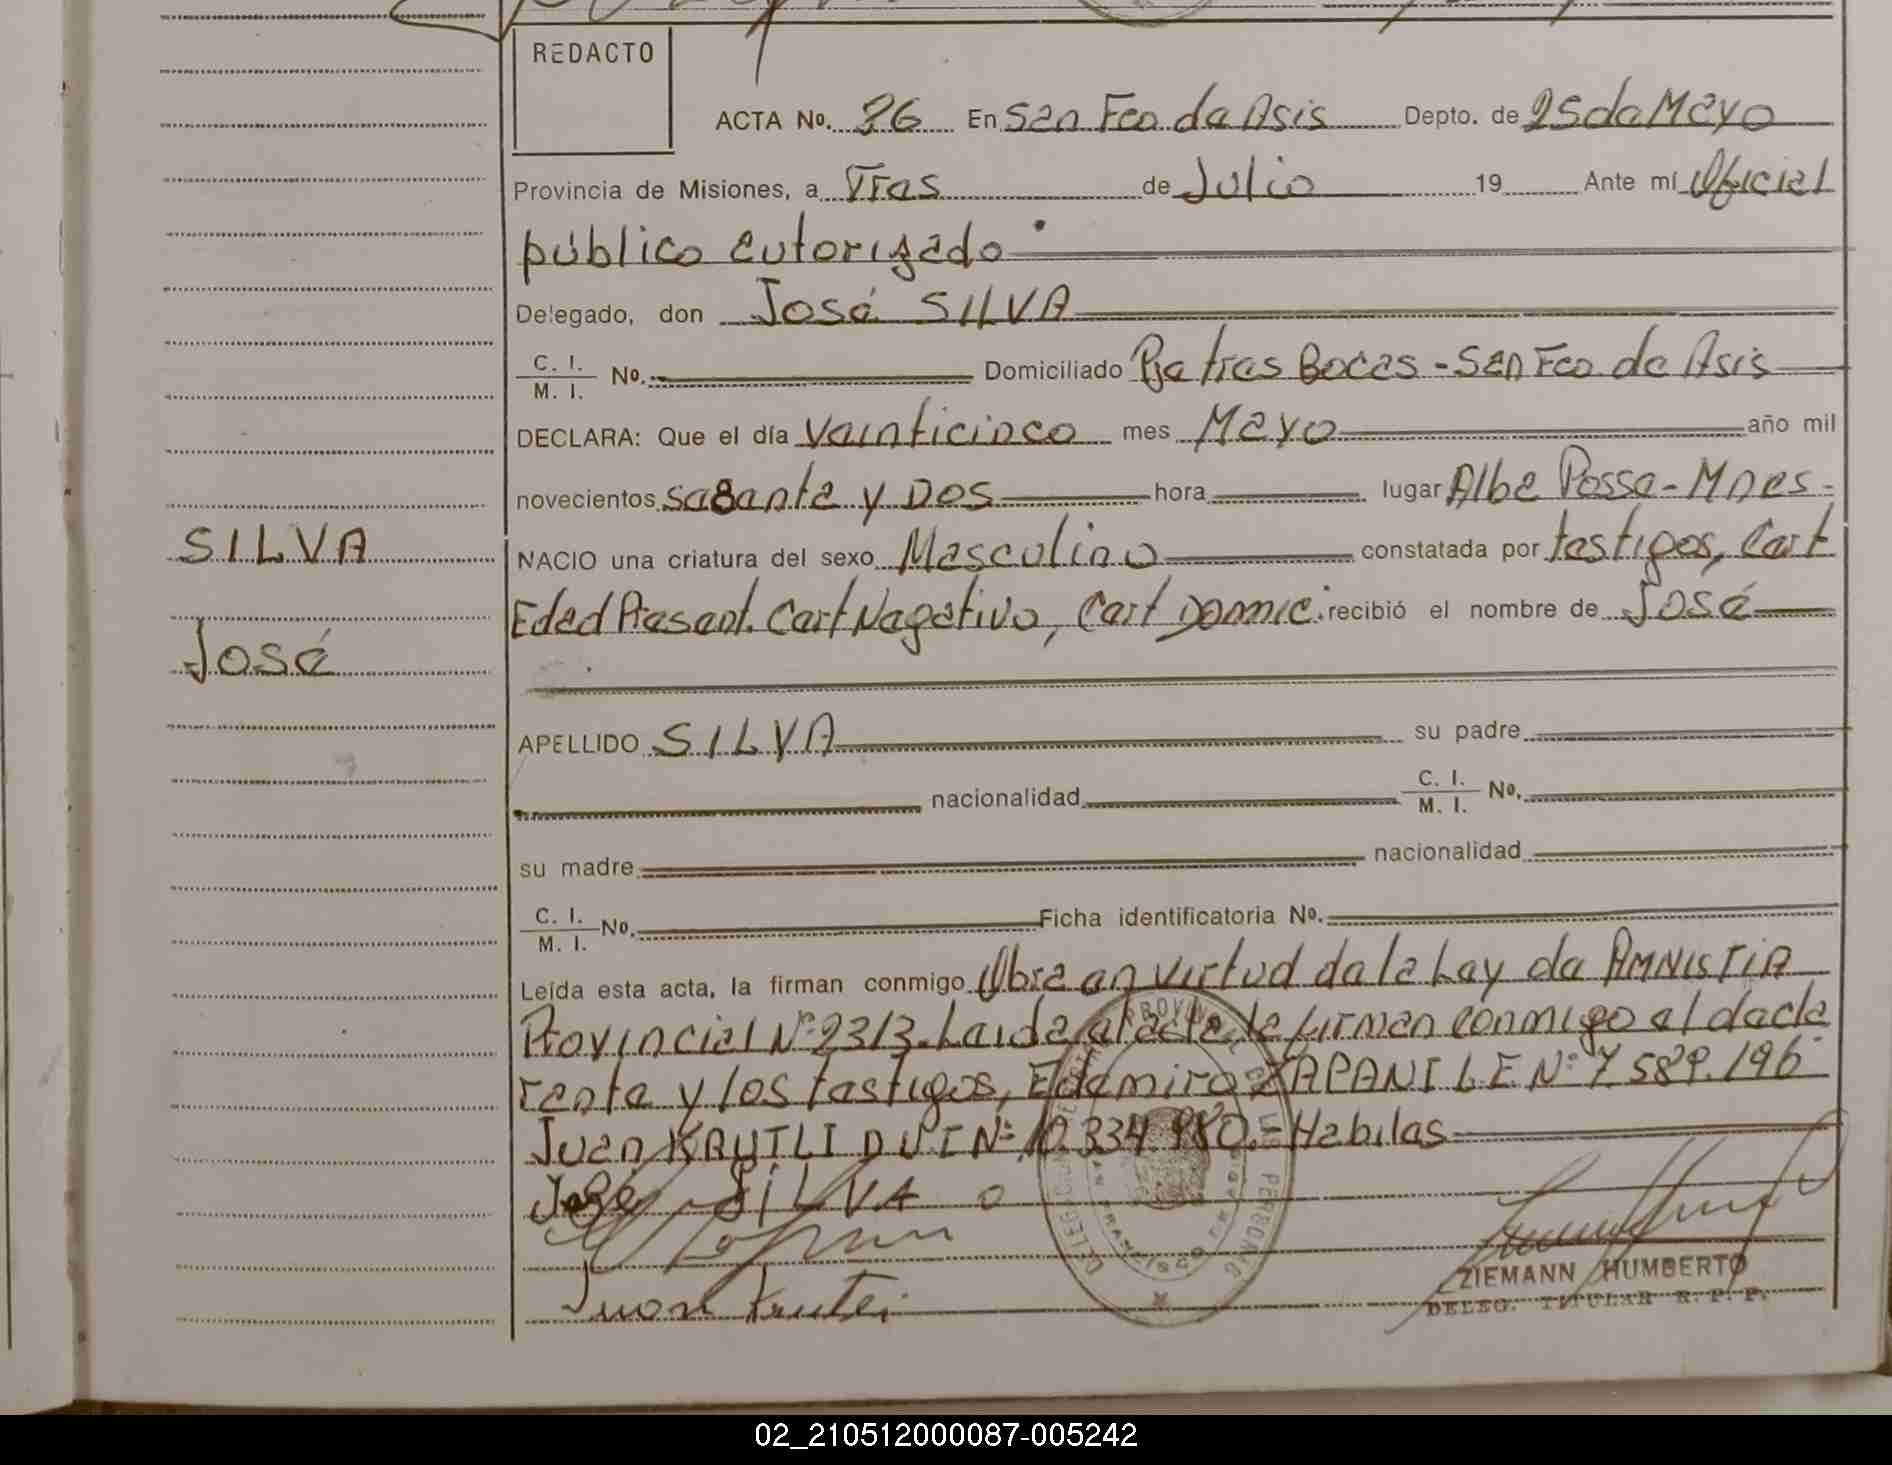 REDACTO
ACTA No. 26 En San Fco de Asis Depto. de 25 de Mayo
Provincia de Misiones, a Tres de Julio 19 Ante mí Oficial
público autorizado
Delegado, don José SILVA
C. I. / M. I. No. Domiciliado Pje tres Bocas - San Fco. de Asis
DECLARA: Que el día veinticinco mes Mayo año mil
novecientos sesenta y Dos hora lugar Alba Posse - Mnes -
SILVA NACIO una criatura del sexo Masculino constatada por testigos, Cert
José Edad Present. Cert Negativo, Cert Domic. recibió el nombre de José
APELLIDO SILVA su padre
nacionalidad C. I. / M. I. No.
su madre nacionalidad
C. I. / M. I. No. Ficha identificatoria No.
Leída esta acta, la firman conmigo Obra en virtud de la Ley de AMNISTIA
Provincial Nº 2313. Leida el acta, la firman conmigo el decla
rente y los testigos, Edemiro ZAPANI L.E. Nº 7.589.196
Juan KRUTLI D.N.I Nº 10.334.980.- Habiles
José SILVA
Juan Krutli
ZIEMANN HUMBERTO
DELEG. TITULAR R. P. P.
02_210512000087-005242